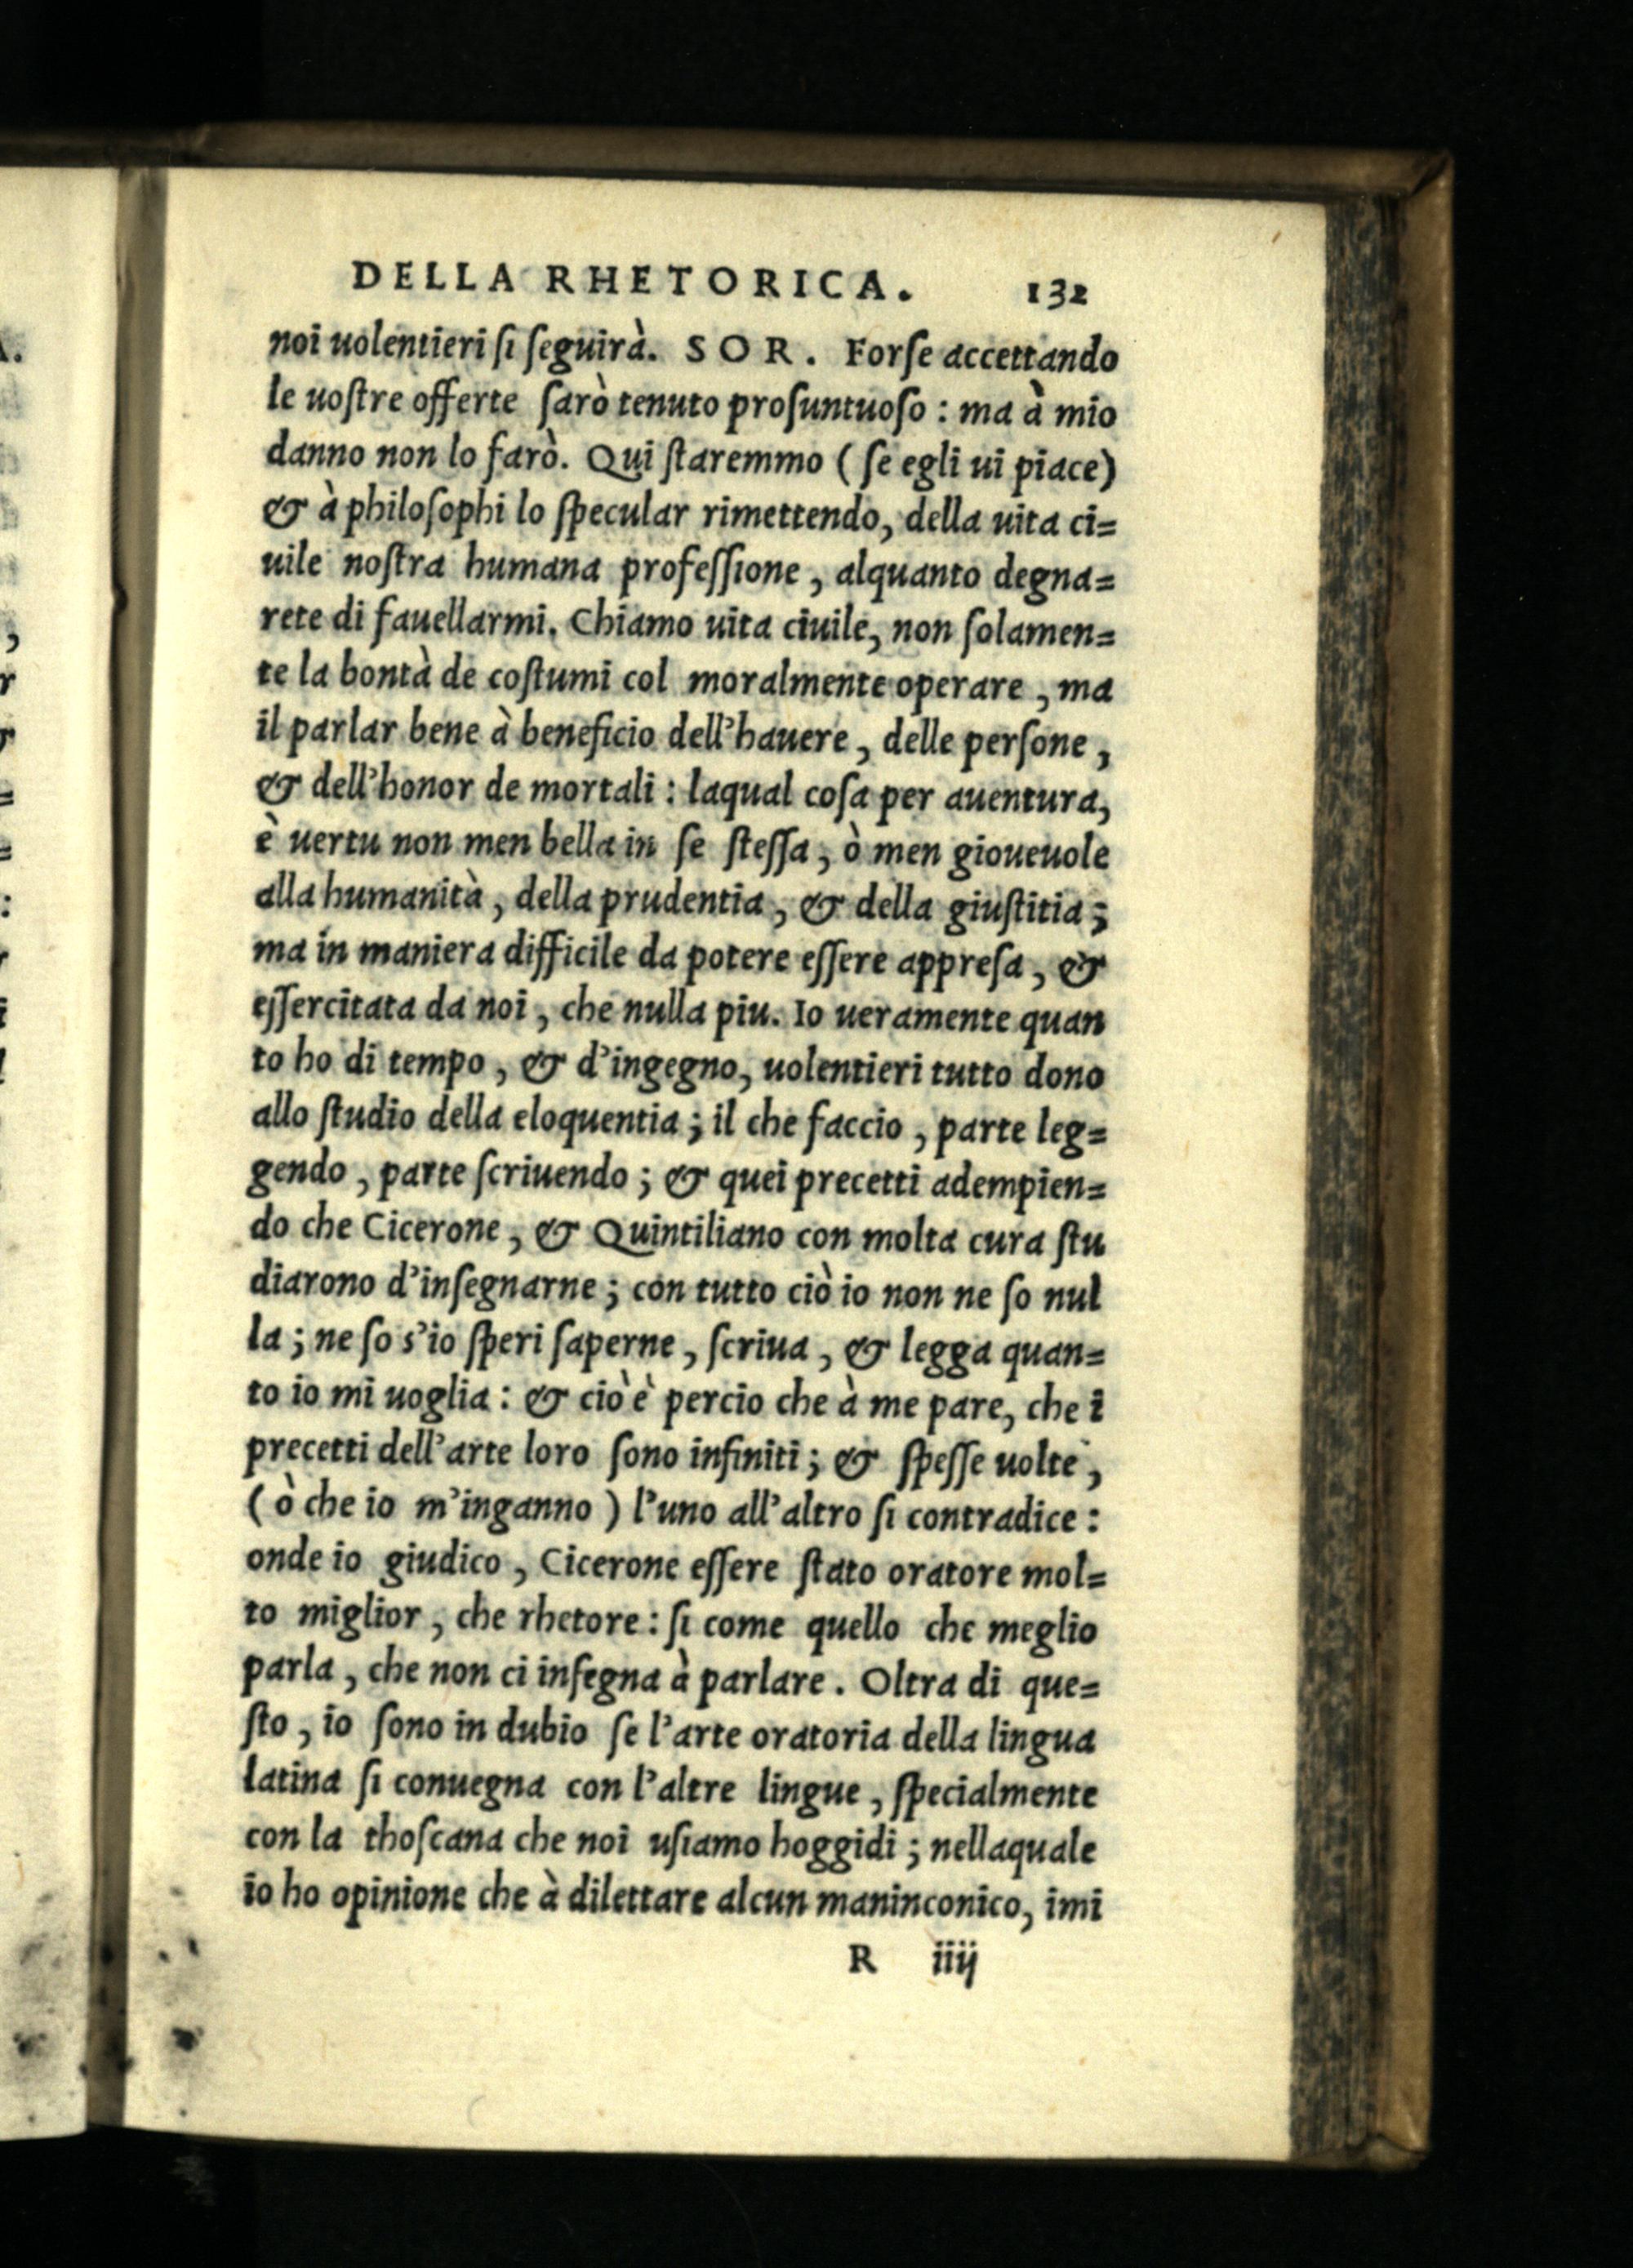 DELLA RHETORICA. 132
noi uolentieri ſi ſeguirà. SOR. Forſe accettando
le uoſtre offerte ſarò tenuto proſuntuoſo : ma à mio
danno non lo farò. Qui ſtaremmo ( ſe egli ui piace)
& à philoſophi lo ſpecular rimettendo, della uita ci=
uile noſtra humana profeſſione, alquanto degna=
rete di fauellarmi. Chiamo uita ciuile, non ſolamen=
te la bontà de coſtumi col moralmente operare, ma
il parlar bene à beneficio dell'hauere, delle perſone,
& dell'honor de mortali : laqual coſa per auentura,
è uertu non men bella in ſe ſteſſa, ò men gioueuole
alla humanità, della prudentia, & della giuſtitia;
ma in maniera difficile da potere eſſere appreſa, &
eſſercitata da noi, che nulla piu. Io ueramente quan
to ho di tempo, & d'ingegno, uolentieri tutto dono
allo ſtudio della eloquentia; il che faccio, parte leg=
gendo, parte ſcriuendo; & quei precetti adempien=
do che Cicerone, & Quintiliano con molta cura ſtu
diarono d'inſegnarne; con tutto ciò io non ne ſo nul
la; ne ſo s'io ſperi ſaperne, ſcriua, & legga quan=
to io mi uoglia: & ciò è percio che à me pare, che i
precetti dell'arte loro ſono infiniti; & ſpeſſe uolte,
( ò che io m'inganno ) l'uno all'altro ſi contradice :
onde io giudico, Cicerone eſſere ſtato oratore mol=
to miglior, che rhetore: ſi come quello che meglio
parla, che non ci inſegna à parlare. Oltra di que=
ſto, io ſono in dubio ſe l'arte oratoria della lingua
latina ſi conuegna con l'altre lingue, ſpecialmente
con la thoſcana che noi uſiamo hoggidi; nellaquale
io ho opinione che à dilettare alcun maninconico, imi
R iiij